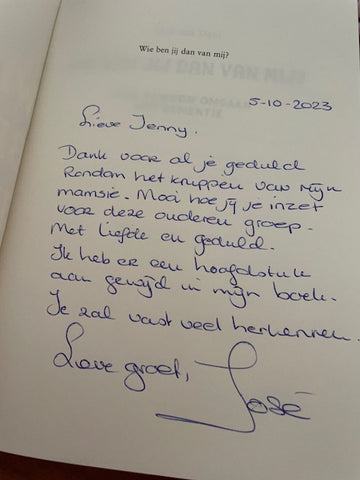 Wie ben jij dan van mij?
5-10-2023
Lieve Jenny.
Dank voor al je geduld
Rondom het knippen van mijn
mamsie. Mooi hoe jij je inzet
voor deze ouderen groep.
Met liefde en geduld.
Ik heb er een hoofdstuk
aan gewijd in mijn boek.
Je zal vast veel herkennen.
Lieve groet,
José